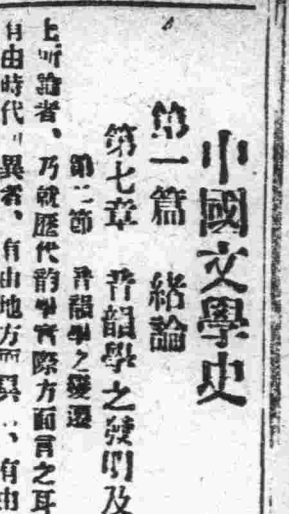 中國文學史
第一篇　緒論
第七章　音韻學之發明及
第二節　音韻學之變遷
上所論者、乃就歷代韵學實際方面言之耳
有由時代而異者、有由地方而異、有由